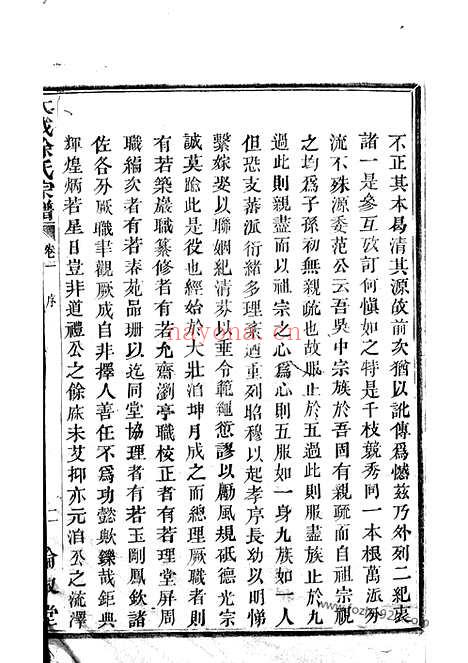 不正其本曷清其源故前次猶以訛傳爲憾茲乃外列二紀衷
諸一是參互攷訂何慎如之特是千枝競秀同一本根萬派分
流不殊源委范公云吾吳中宗族於吾固有親疏而自祖宗視
之均爲子孫初無親疏也故服止於五過此則服盡族止於九
過此則親盡而以祖宗之心爲心則五服如一身九族如一人
但恐支蕃派衍緒多理紊迺重列昭穆以起孝序長幼以明悌
繫嫁娶以聯姻紀清芬以垂令範繩愆謬以勵風規砥德光宗
誠莫踰此是役也經始於大壯洎坤月成之而總理厥職者則
有若築巖職纂修者有若允齋瀏亭職校正者有若理堂屏周
職編次者有若泰苑品珊以迄同堂協理者有若玉剛鳳欽諸
佐各分厥職聿觀厥成自非擇人善任不爲功懿歟鑠哉鉅典
輝煌炳若星日豈非道禮公之餘庥未艾抑亦元洎公之流澤
徐氏宗譜
卷一
序
二
倫敘堂
nayona.cn